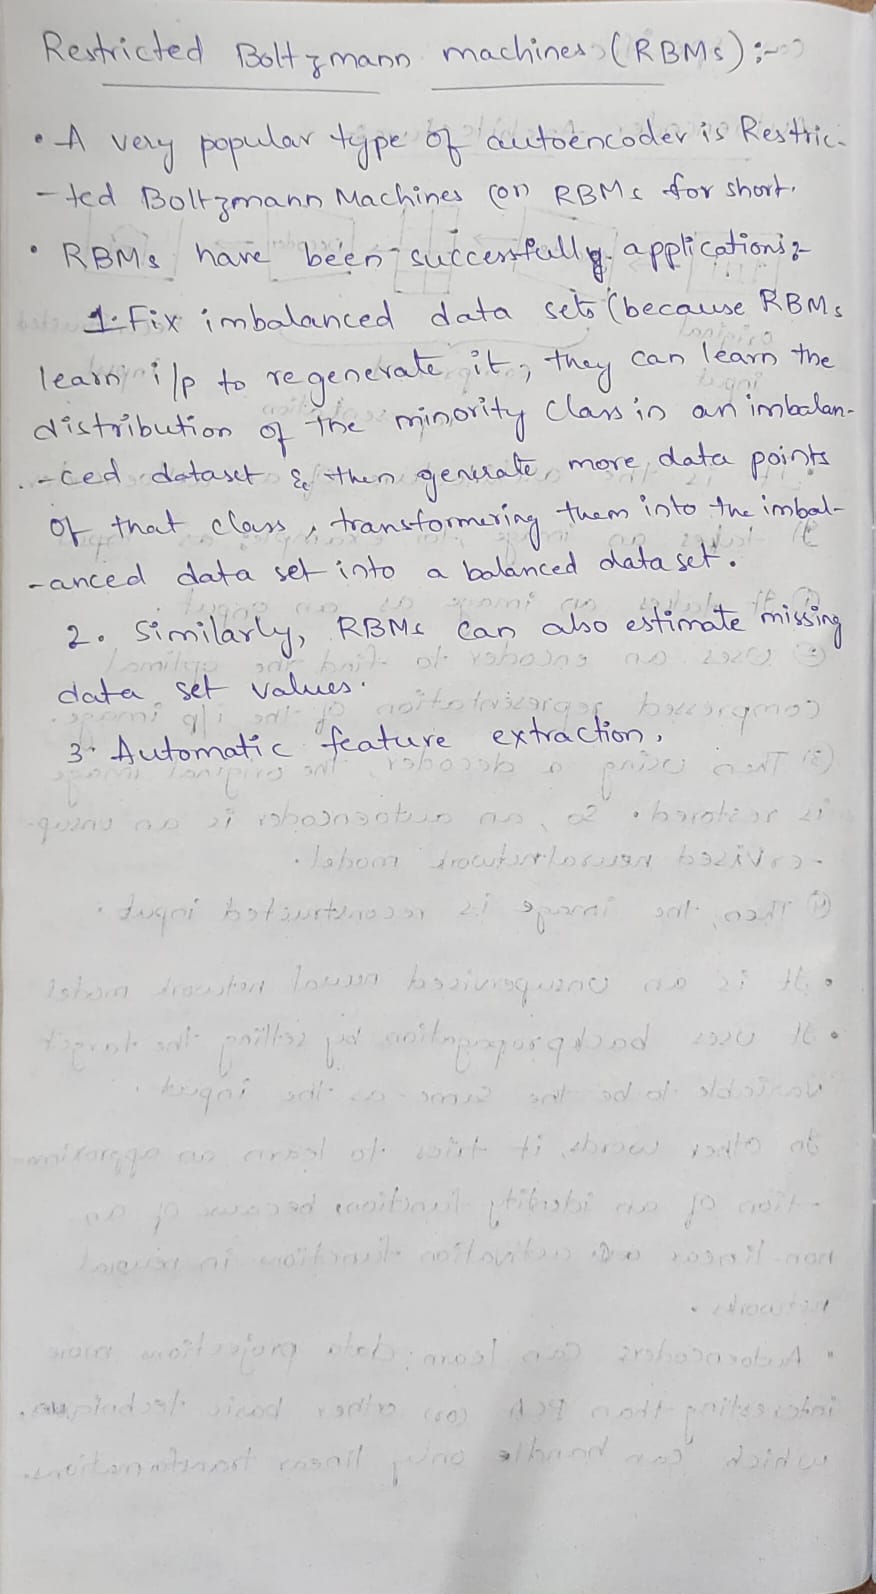 Restricted Boltzmann machines (RBMs) :-
• A very popular type of autoencoder is Restric-
-ted Boltzmann Machines (or) RBMs for short.
• RBMs have been successfully applications:-
1. Fix imbalanced data sets (because RBMs
learn i/p to regenerate it, they can learn the
distribution of the minority class in an imbalan-
-ced dataset & then generate more data points
of that class, transformering them into the imbal-
-anced data set into a balanced data set.
2. Similarly, RBMs can also estimate missing
data set values.
3. Automatic feature extraction.